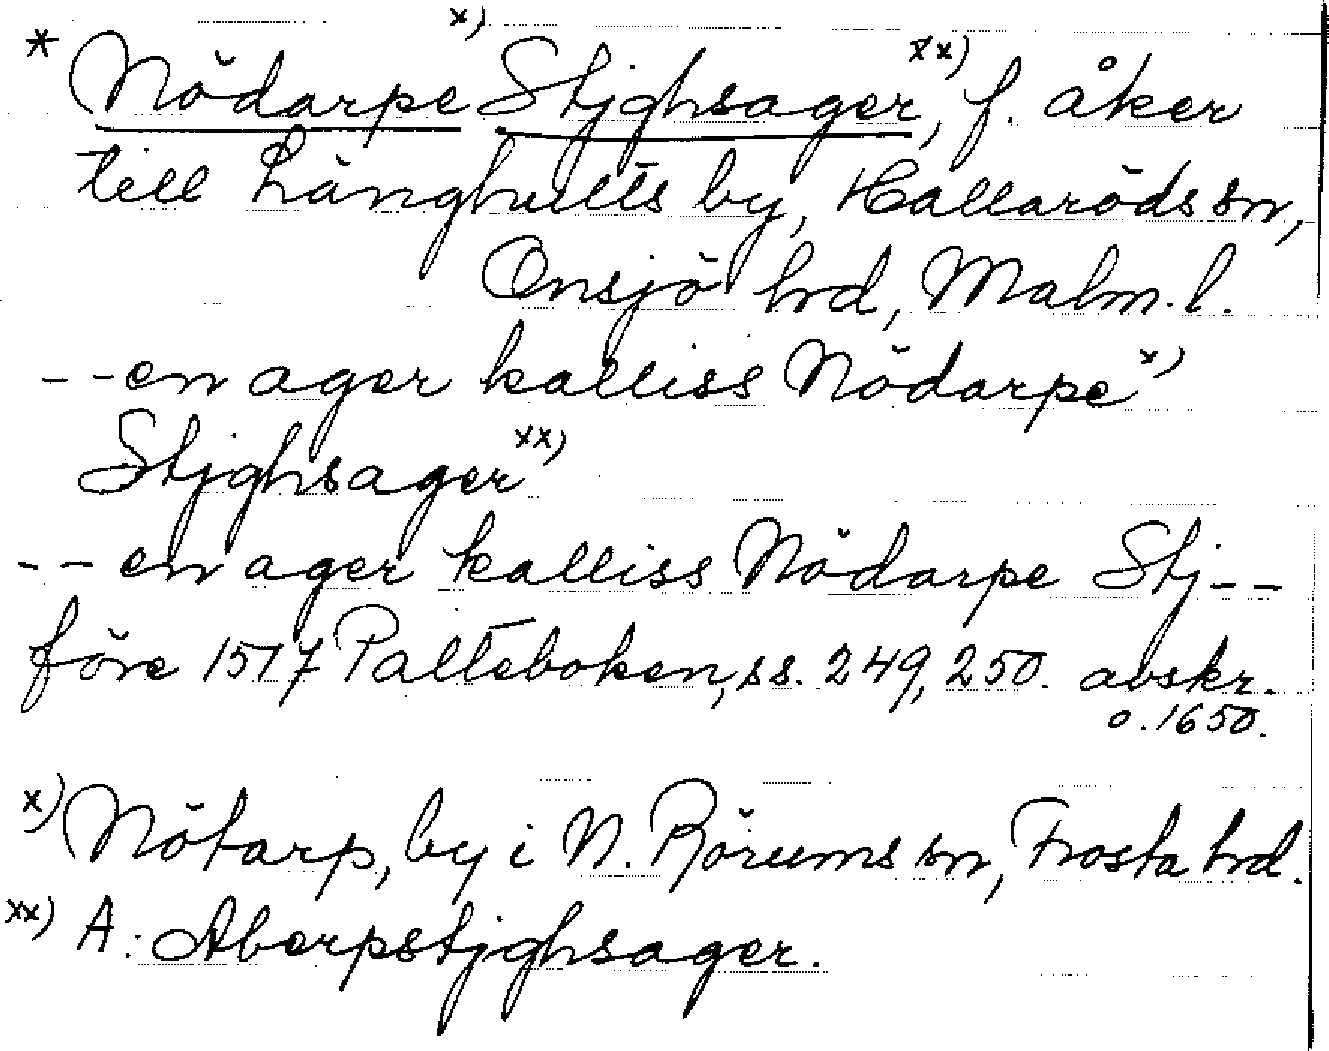 * Nödarpe x) Stjghsager xx), f. åker
till Långhults by, Hallaröds sn,
Onsjö hrd, Malm. l.
-- en ager kalliss Nödarpe x)
Stjghsager xx)
-- en ager kalliss Nödarpe Stj--
före 1517 Palteboken, ss. 249, 250. avskr.
o. 1650.
x) Nötarp, by i N. Rörums sn, Frosta hrd.
xx) A: Aberpstjghsager.